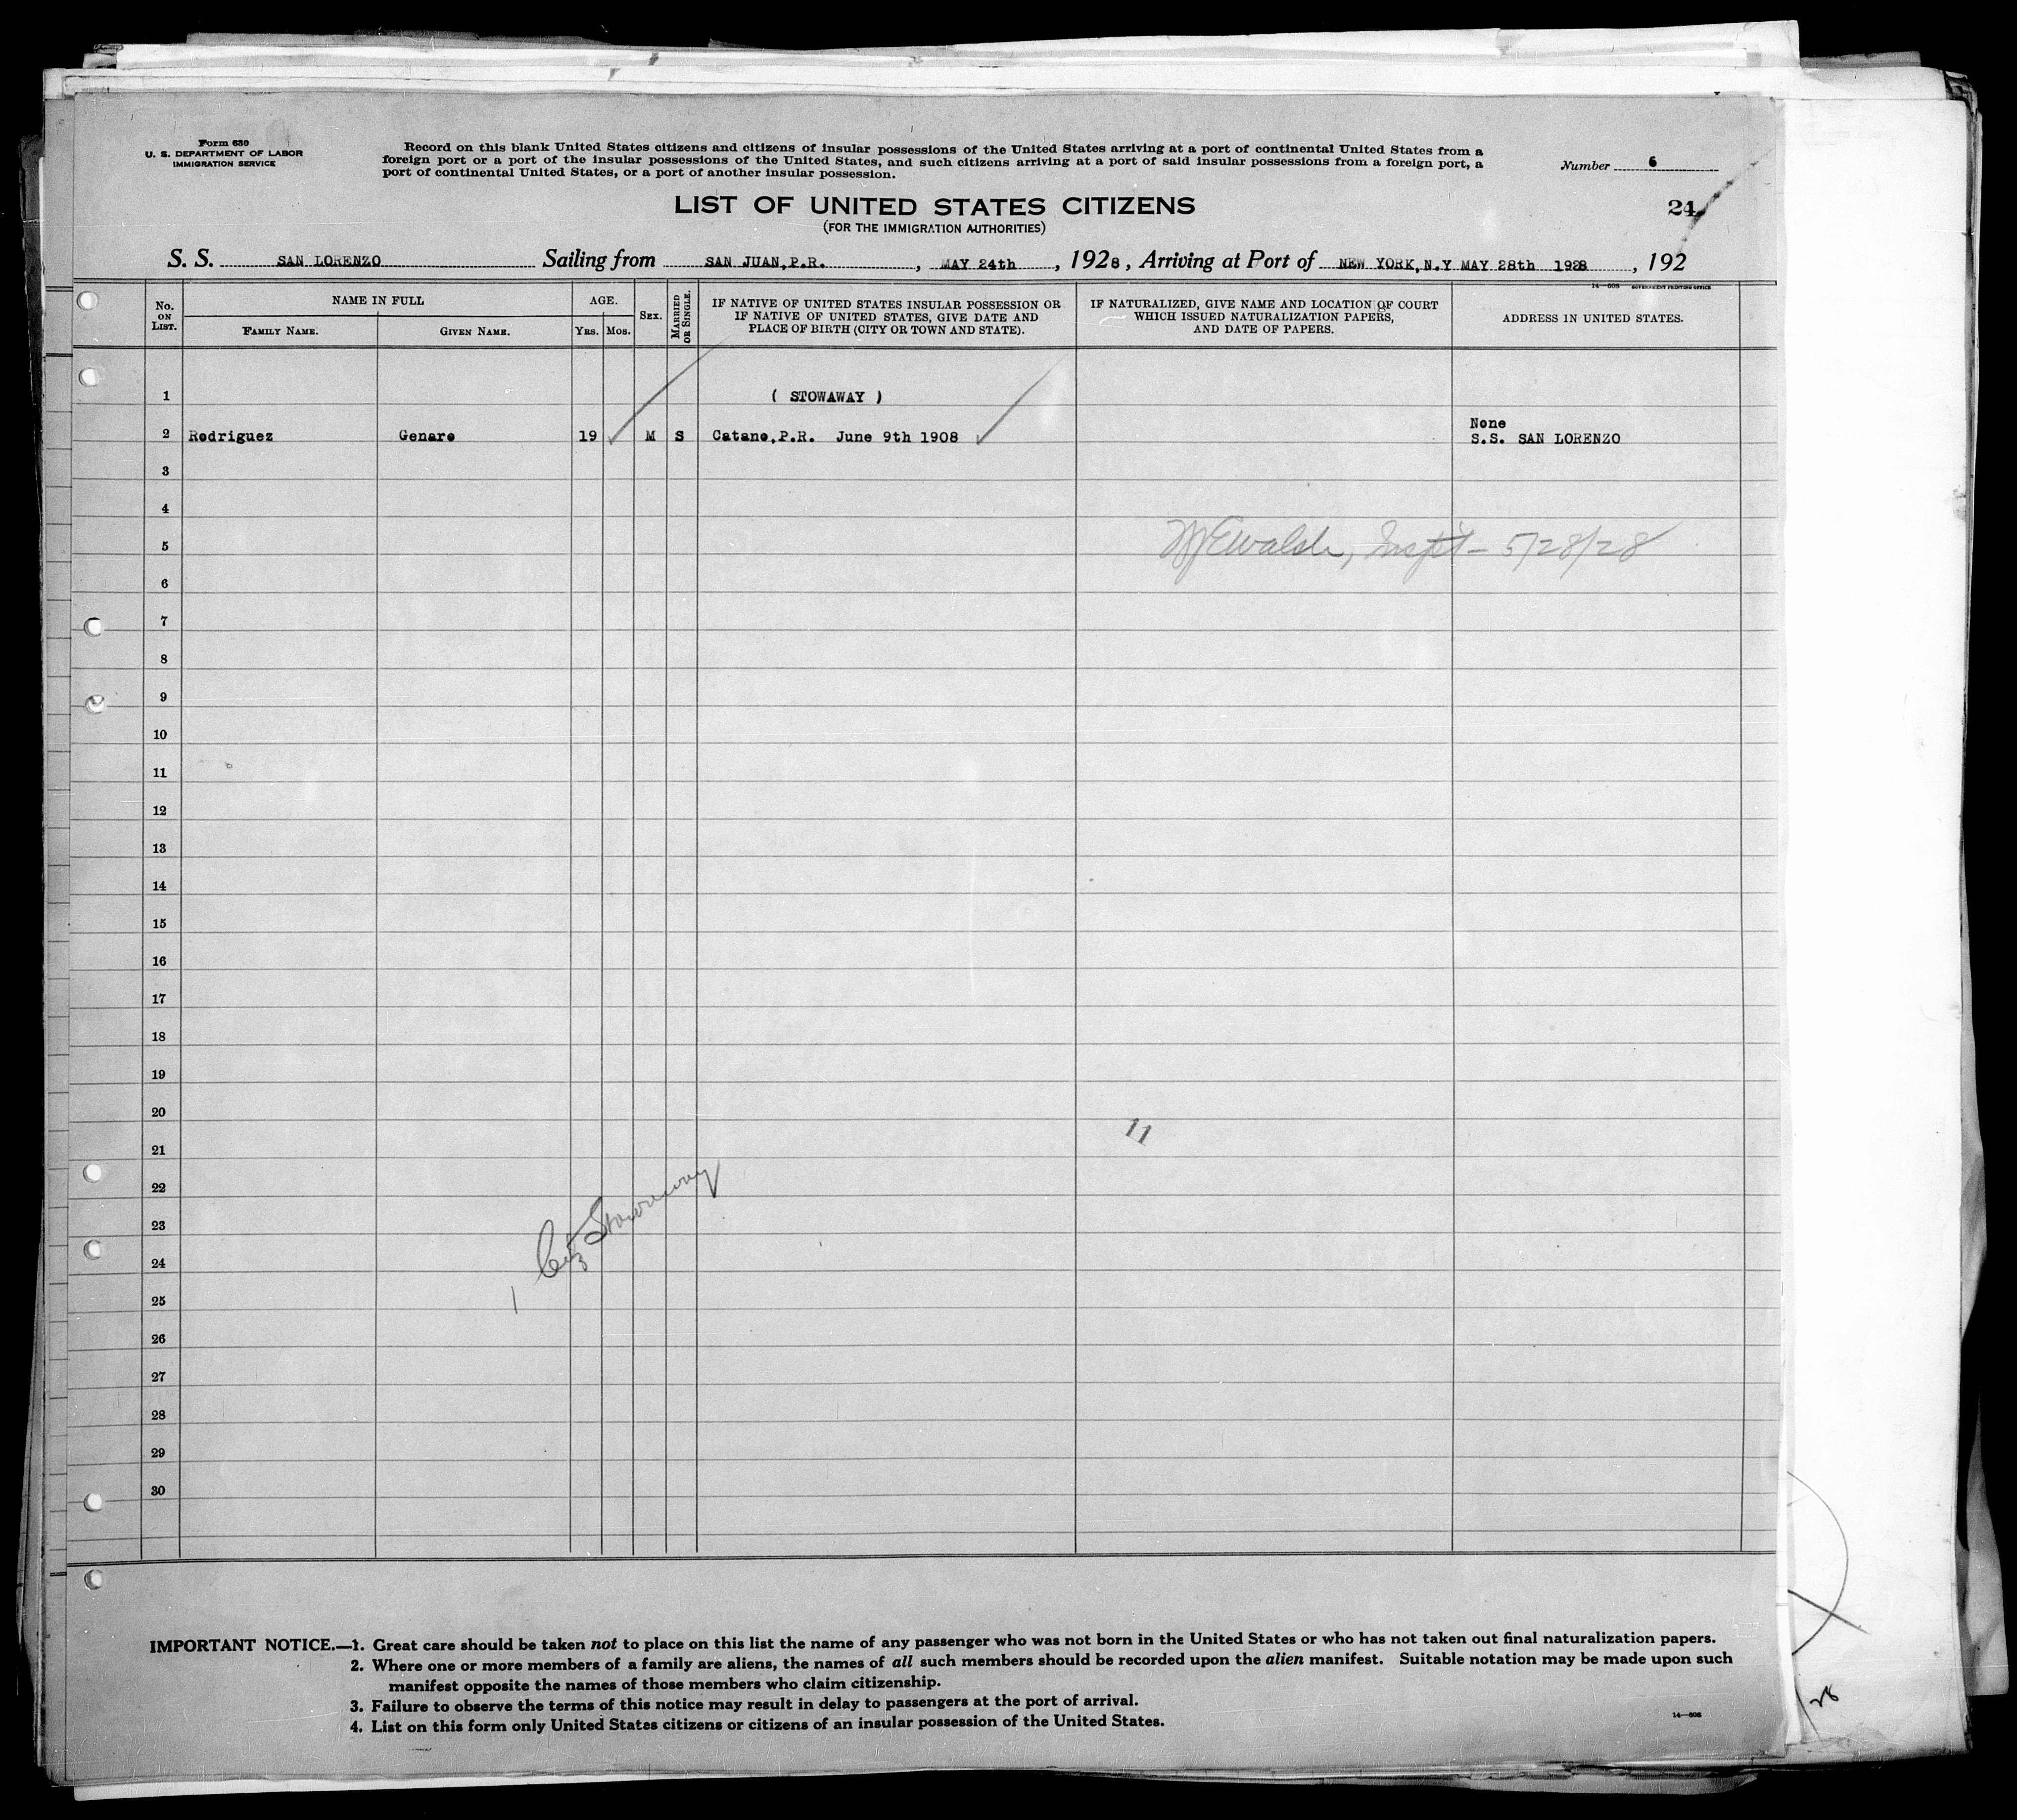 Form 630
U. S. DEPARTMENT OF LABOR
IMMIGRATION SERVICE
Record on this blank United States citizens and citizens of insular possessions of the United States arriving at a port of continental United States from a
foreign port or a port of the insular possessions of the United States, and such citizens arriving at a port of said insular possessions from a foreign port, a
port of continental United States, or a port of another insular possession.
Number 6
LIST OF UNITED STATES CITIZENS
24
(FOR THE IMMIGRATION AUTHORITIES)
S. S. SAN LORENZO Sailing from SAN JUAN,P.R. , MAY 24th , 1928, Arriving at Port of NEW YORK,N.Y MAY 28th 1928 , 192
14—608 GOVERNMENT PRINTING OFFICE
No. ON LIST.
NAME IN FULL
FAMILY NAME. GIVEN NAME.
AGE.
YRS. MOS.
SEX.
MARRIED OR SINGLE.
IF NATIVE OF UNITED STATES INSULAR POSSESSION OR
IF NATIVE OF UNITED STATES, GIVE DATE AND
PLACE OF BIRTH (CITY OR TOWN AND STATE).
IF NATURALIZED, GIVE NAME AND LOCATION OF COURT
WHICH ISSUED NATURALIZATION PAPERS,
AND DATE OF PAPERS.
ADDRESS IN UNITED STATES.
1 ( STOWAWAY )
None
2 Rodriguez Genaro 19 M S Catano,P.R. June 9th 1908 S.S. SAN LORENZO
3
4
5 Inspt - 5/28/28
6
7
8
9
10
11
12
13
14
15
16
17
18
19
20
11
21
22
23
1 Citz Stowaway
24
25
26
27
28
29
30
IMPORTANT NOTICE.—1. Great care should be taken not to place on this list the name of any passenger who was not born in the United States or who has not taken out final naturalization papers.
2. Where one or more members of a family are aliens, the names of all such members should be recorded upon the alien manifest. Suitable notation may be made upon such
manifest opposite the names of those members who claim citizenship.
3. Failure to observe the terms of this notice may result in delay to passengers at the port of arrival.
4. List on this form only United States citizens or citizens of an insular possession of the United States.
14—608
/28